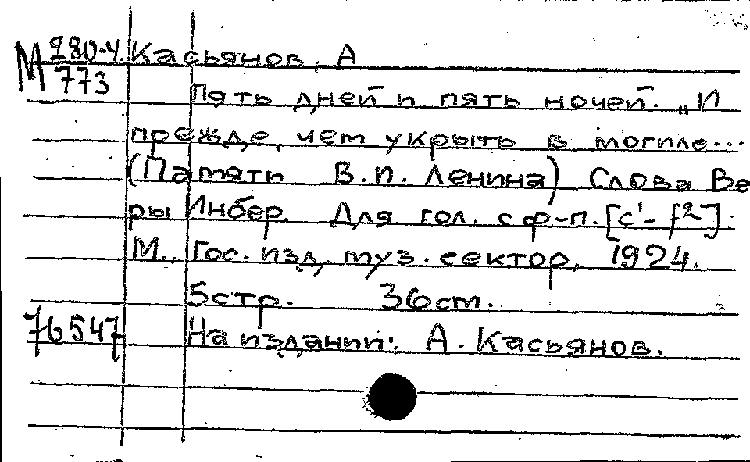 М 280-4 Касьянов, А
773 Пять дней и пять ночей. „И
прежде, чем укрыть в могиле...
(Памяти В.И. Ленина) Слова Ве
ры Инбер. Для гол. с ф-п. [c¹-f²].
М., Гос. изд. муз. сектор, 1924.
5стр. 36ст.
76547 На издании: А. Касьянов.